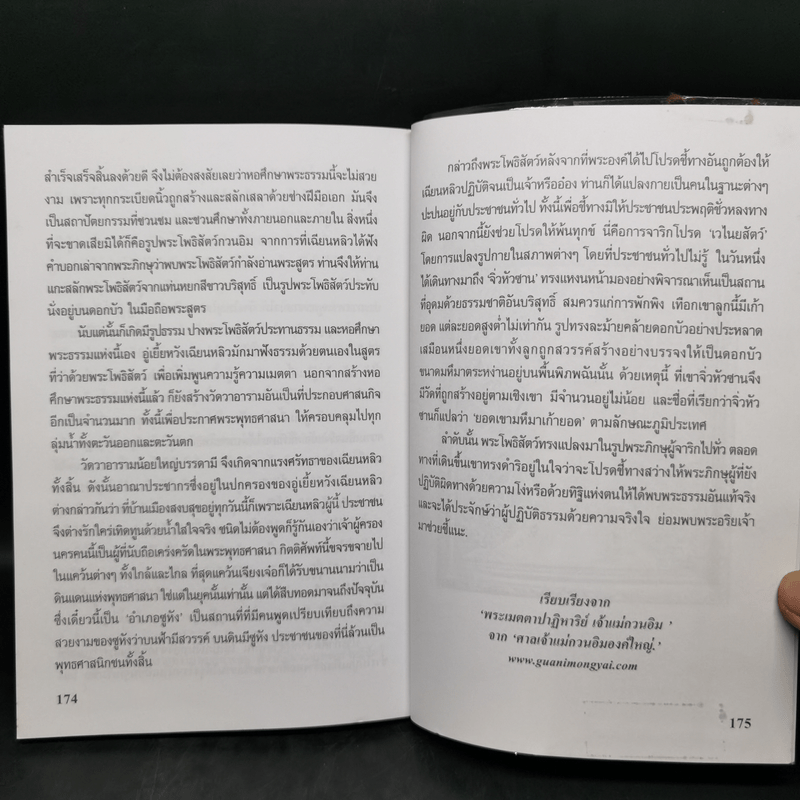 สำเร็จเสร็จสิ้นลงด้วยดี จึงไม่ต้องสงสัยเลยว่าหอศึกษาพระธรรมนี้จะไม่สวย
งาม เพราะทุกกระเบียดนิ้วถูกสร้างและสลักเสลาด้วยช่างฝีมือเอก มันจึง
เป็นสถาปัตยกรรมที่ชวนชม และชวนศึกษาทั้งภายนอกและภายใน สิ่งหนึ่ง
ที่จะขาดเสียมิได้ก็คือรูปพระโพธิสัตว์กวนอิม จากการที่เฉียนหลิวได้ฟัง
คำบอกเล่าจากพระภิกษุว่าพบพระโพธิสัตว์กำลังอ่านพระสูตร ท่านจึงให้ท่าน
แกะสลักพระโพธิสัตว์จากแท่นหยกสีขาวบริสุทธิ์ เป็นรูปพระโพธิสัตว์ประทับ
นั่งอยู่บนดอกบัว ในมือถือพระสูตร
นับแต่นั้นก็เกิดมีรูปธรรม ปางพระโพธิสัตว์ประทานธรรม และหอศึกษา
พระธรรมแห่งนี้เอง อู่เยี้ยหวังเฉียนหลิวมักมาฟังธรรมด้วยตนเองในสูตร
ที่ว่าด้วยพระโพธิสัตว์ เพื่อเพิ่มพูนความรู้ความเมตตา นอกจากสร้างหอ
ศึกษาพระธรรมแห่งนี้แล้ว ก็ยังสร้างวัดวาอารามอันเป็นที่ประกอบศาสนกิจ
อีกเป็นจำนวนมาก ทั้งนี้เพื่อประกาศพระพุทธศาสนา ให้ครอบคลุมไปทุก
ลุ่มน้ำทั้งตะวันออกและตะวันตก
วัดวาอารามน้อยใหญ่บรรดามี จึงเกิดจากแรงศรัทธาของเฉียนหลิว
ทั้งสิ้น ดังนั้นอาณาประชากรซึ่งอยู่ในปกครองของอู่เยี้ยหวังเฉียนหลิว
ต่างกล่าวกันว่า ที่บ้านเมืองสงบสุขอยู่ทุกวันนี้ก็เพราะเฉียนหลิวผู้นี้ ประชาชน
จึงต่างรักใคร่เทิดทูนด้วยน้ำใสใจจริง ชนิดไม่ต้องพูดก็รู้กันเองว่าเจ้าผู้ครอง
นครคนนี้เป็นผู้ที่นับถือเคร่งครัดในพระพุทธศาสนา กิตติศัพท์นี้ขจรขจายไป
ในแคว้นต่างๆ ทั้งใกล้และไกล ที่สุดแคว้นเจียงเจ๋อก็ได้รับขนานนามว่าเป็น
ดินแดนแห่งพุทธศาสนา ใช่แต่ในยุคนั้นเท่านั้น แต่ได้สืบทอดมาจนถึงปัจจุบัน
ซึ่งเดี๋ยวนี้เป็น 'อำเภอซูหัง' เป็นสถานที่ที่มีคนพูดเปรียบเทียบถึงความ
สวยงามของซูหังว่าบนฟ้ามีสวรรค์ บนดินมีซูหัง ประชาชนของที่นี่ล้วนเป็น
พุทธศาสนิกชนทั้งสิ้น
174
กล่าวถึงพระโพธิสัตว์หลังจากที่พระองค์ได้ไปโปรดชี้ทางอันถูกต้องให้
เฉียนหลิวปฏิบัติจนเป็นเจ้าหรืออ๋อง ท่านก็ได้แปลงกายเป็นคนในฐานะต่างๆ
ปะปนอยู่กับประชาชนทั่วไป ทั้งนี้เพื่อชี้ทางมิให้ประชาชนประพฤติชั่วหลงทาง
ผิด นอกจากนี้ยังช่วยโปรดให้พ้นทุกข์ นี่คือการจาริกโปรด 'เวไนยสัตว์'
โดยการแปลงรูปกายในสภาพต่างๆ โดยที่ประชาชนทั่วไปไม่รู้ ในวันหนึ่ง
ได้เดินทางมาถึง 'จิ่วหัวซาน' ทรงแหงนหน้ามองอย่างพิจารณาเห็นเป็นสถาน
ที่อุดมด้วยธรรมชาติอันบริสุทธิ์ สมควรแก่การพักพิง เทือกเขาลูกนี้มีเก้า
ยอด แต่ละยอดสูงต่ำไม่เท่ากัน รูปทรงละม้ายคล้ายดอกบัวอย่างประหลาด
เสมือนหนึ่งยอดเขาทั้งลูกถูกสวรรค์สร้างอย่างบรรจงให้เป็นดอกบัว
ขนาดมหึมาตระหง่านอยู่บนพื้นพิภพฉันนั้น ด้วยเหตุนี้ ที่เขาจิ่วหัวซานจึง
มีวัดที่ถูกสร้างอยู่ตามเชิงเขา มีจำนวนอยู่ไม่น้อย และชื่อที่เรียกว่าจิ่วหัว
ซานก็แปลว่า 'ยอดเขามหึมาเก้ายอด' ตามลักษณะภูมิประเทศ
ลำดับนั้น พระโพธิสัตว์ทรงแปลงมาในรูปพระภิกษุผู้จาริกไปทั่ว ตลอด
ทางที่เดินขึ้นเขาทรงดำริอยู่ในใจว่าจะโปรดชี้ทางสว่างให้พระภิกษุผู้ที่ยัง
ปฏิบัติผิดทางด้วยความโง่หรือด้วยทิฐิแห่งตนให้ได้พบพระธรรมอันแท้จริง
และจะได้ประจักษ์ว่าผู้ปฏิบัติธรรมด้วยความจริงใจ ย่อมพบพระอริยเจ้า
มาช่วยชี้แนะ.
เรียบเรียงจาก
'พระเมตตาปาฏิหาริย์ เจ้าแม่กวนอิม '
จาก 'ศาลเจ้าแม่กวนอิมองค์ใหญ่.'
www.guanimongyai.com
175